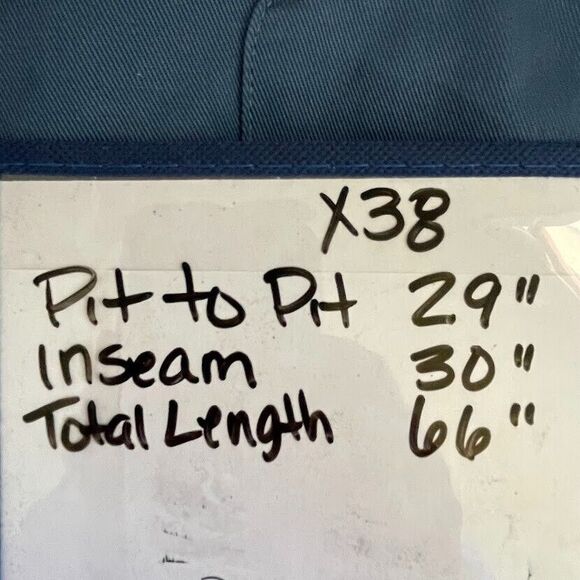 X38
Pit to Pit 29"
Inseam 30"
Total Length 66"